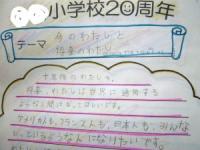 小学校20周年
テーマ
今のわたしと
将来のわたし
十年後のわたしへ。
将来、わたしは世界に通用する
ような人間になってほしいです。
アメリカ人も、フランス人も、日本人も、みんな
なりたいです。